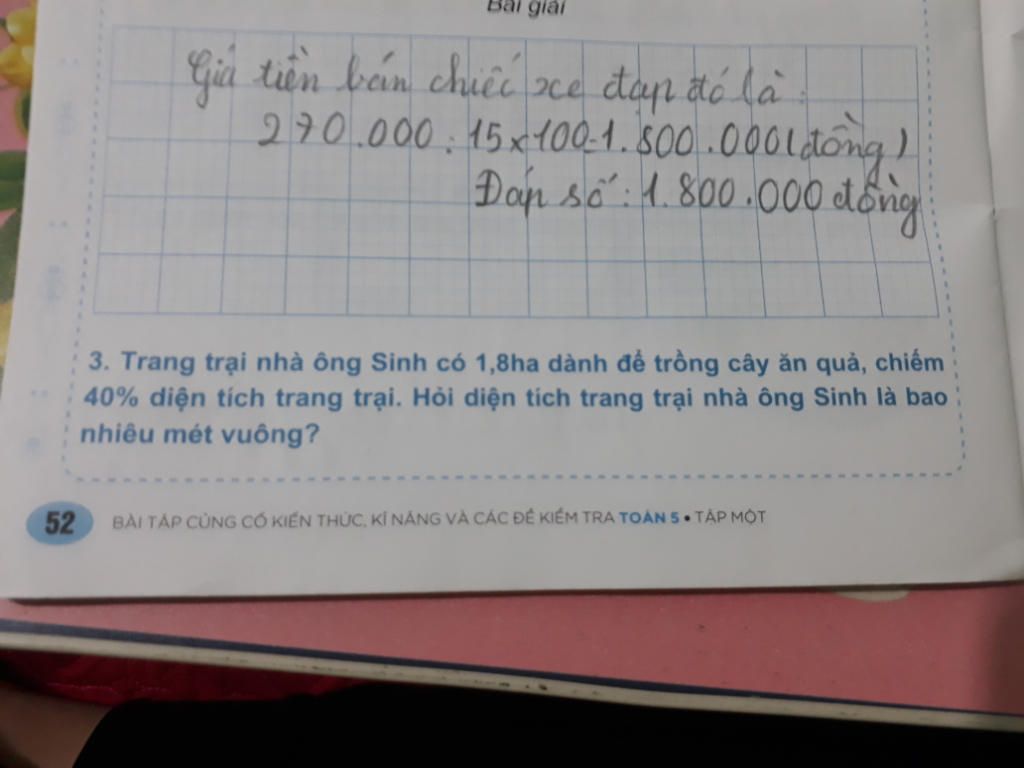 Bài giải
Giá tiền bán chiếc xe đạp đó là:
270.000 : 15 x 100 = 1.800.000 (đồng)
Đáp số : 1.800.000 đồng
3. Trang trại nhà ông Sinh có 1,8ha dành để trồng cây ăn quả, chiếm
40% diện tích trang trại. Hỏi diện tích trang trại nhà ông Sinh là bao
nhiêu mét vuông?
52 BÀI TẬP CỦNG CỐ KIẾN THỨC, KĨ NĂNG VÀ CÁC ĐỀ KIỂM TRA TOÁN 5 • TẬP MỘT